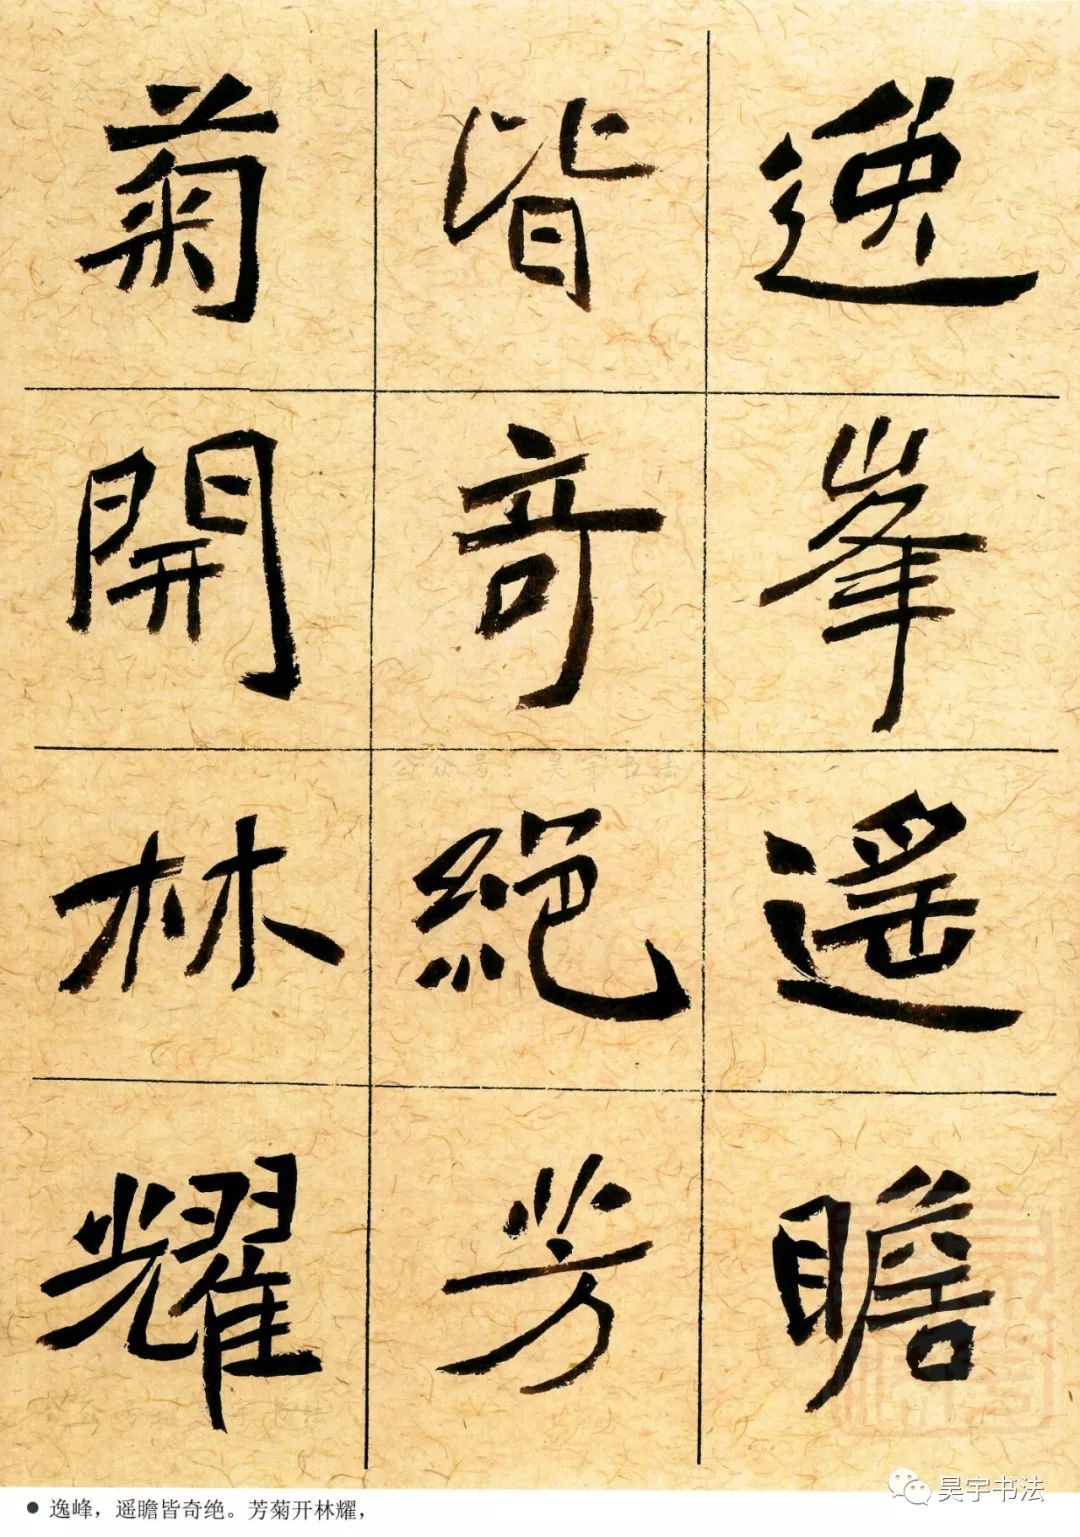 逸峯遥瞻
皆奇絕芳
菊開林耀
公众号：昊宇书法
逸峰，遥瞻皆奇绝。芳菊开林耀，
昊宇书法